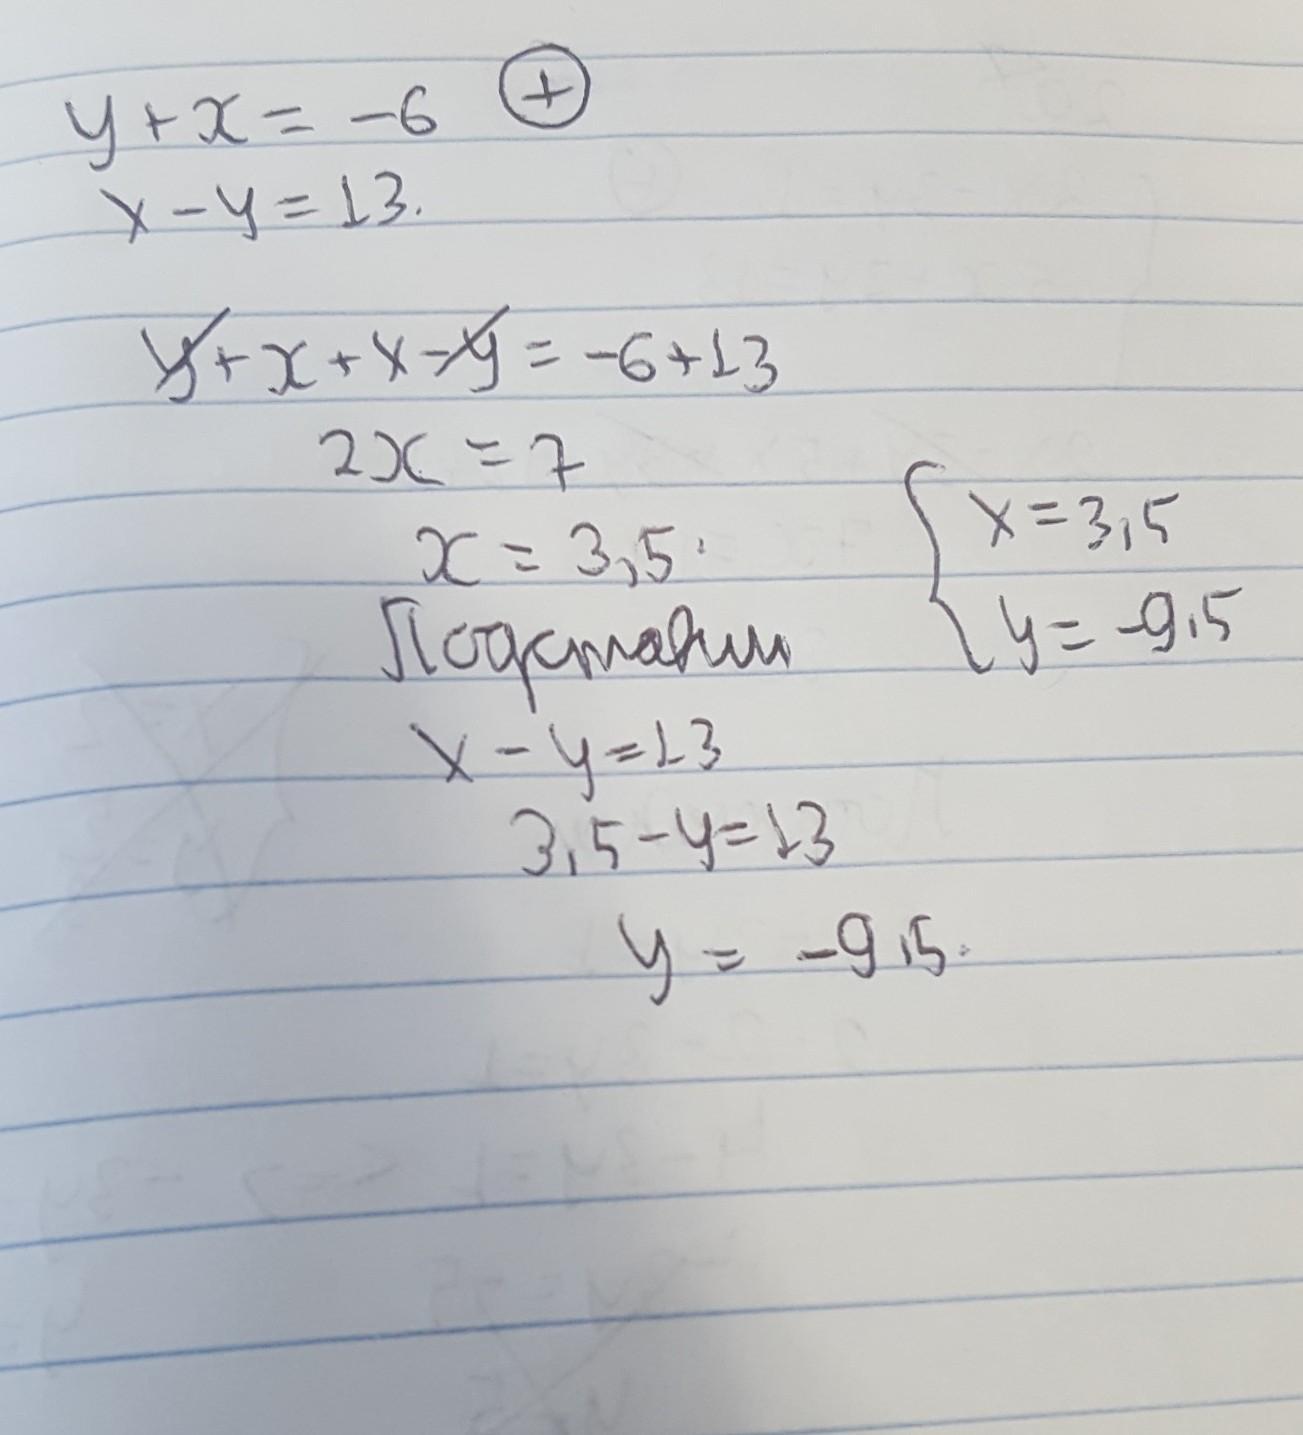 y + x = -6 (+)
x - y = 13.
y + x + x - y = -6 + 13
2x = 7
x = 3,5.
Подставим
x - y = 13
3,5 - y = 13
y = -9,5.
{ x = 3,5
y = -9,5